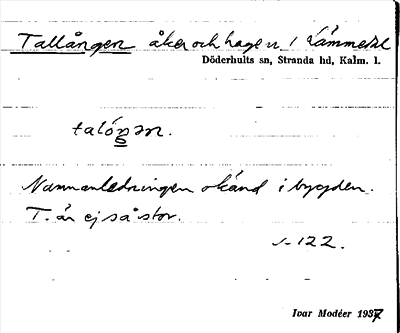 Tallången åker och hage n 1 Lämmedal
Döderhults sn, Stranda hd, Kalm. l.
talóŋən.
Namnanledningen okänd i bygden.
T. är ej så stor.
s. 122.
Ivar Modéer 1937